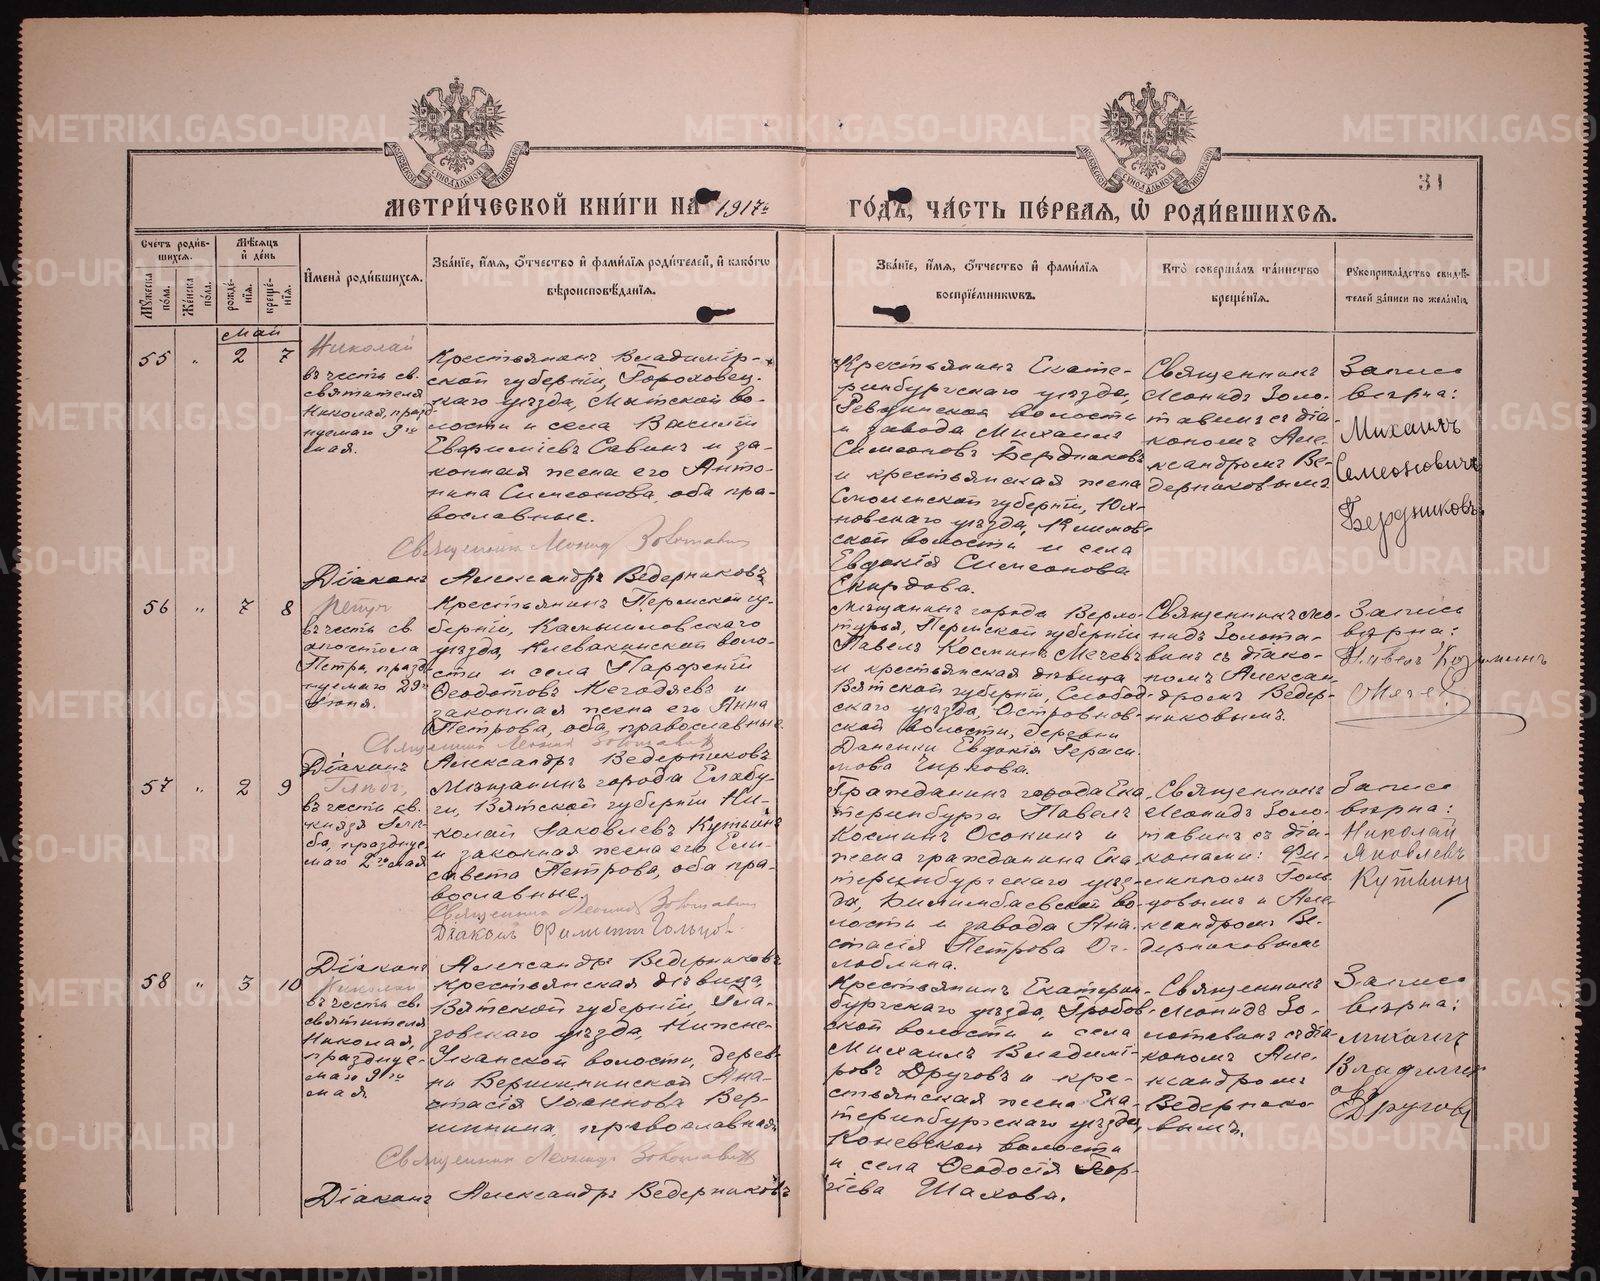 METRIKI.GASO-URAL.RU
МОСКОВСКОЙ СѴНОДАЛЬНОЙ ТИПОГРАФІИ
31
МЕТРИ́ЧЕСКОЙ КНИ́ГИ НА 1917й
ГО́ДЪ, ЧА́СТЬ ПЕ́РВАЯ, Ѡ РОДИ́ВШИХСЯ.
Сче́тъ роди́в-
шихся.
Мѣ́сяцъ
и҆ де́нь
Му́жеска по́ла.
Же́нска по́ла.
рожде́-
нія.
креще́-
нія.
И҆мена̀ роди́вшихся.
Зва́ніе, и҆́мя, ѻ҆́тчество и҆ фами́лія роди́телей, и҆ како́гѡ
вѣроисповѣ́данія.
Зва́ніе, и҆́мя, ѻ҆́тчество и҆ фами́лія
воспріе́мникѡвъ.
Кто̀ соверша́лъ та́инство
креще́нія.
Рꙋкоприкла́дство свидѣ́-
телей за́писи по жела́нію.
Май
55 " 2 7
Николай
въ честь св.
святителя
Николая, празд-
нуемаго 9го
мая.
Крестьянинъ Владимір-
ской губерніи, Гороховец-
каго уѣзда, Мытской во-
лости и села Василій
Евфиміевъ Савинъ и за-
конная жена его Анто-
нина Симеонова, оба пра-
вославные.
Священникъ Леонидъ Золотавинъ
Діаконъ Александръ Ведерниковъ
Крестьянинъ Екате-
ринбургскаго уѣзда,
Ревдинской волости
и завода Михаилъ
Симеоновъ Бердниковъ
и крестьянская жена
Смоленской губерніи, Юх-
новскаго уѣзда, Климов-
ской волости и села
Евдокія Симеонова
Скирдова.
Священникъ
Леонидъ Золо-
тавинъ съ діа-
кономъ Але-
ксандромъ Ве-
дерниковымъ
Запись
вѣрна:
Михаилъ
Семеновичъ
Бердниковъ
56 " 7 8
Петръ
въ честь св.
апостола
Петра, празд-
нуемаго 29го
Іюня.
Крестьянинъ Пермской гу-
берніи, Камышловскаго
уѣзда, Клевакинской воло-
сти и села Парфеній
Ѳеодотовъ Негодяевъ и
законная жена его Анна
Петрова, оба православные
Священникъ Леонидъ Золотавинъ
Діаконъ Александръ Ведерниковъ
Мѣщанинъ города Верхо-
турья, Пермской губерніи
Павелъ Косминъ Мечевъ
и крестьянская дѣвица
Вятской губерніи, Слобод-
скаго уѣзда, Островнов-
ской волости, деревни
Даненки Евдокія Гераси-
мова Чиркова.
Священникъ Лео-
нидъ Золота-
винъ съ діако-
номъ Алексан-
дромъ Ведер-
никовымъ.
Запись
вѣрна:
Павелъ Козьминъ
Мечев
57 " 2 9
Глѣбъ,
въ честь св.
князя Глѣ-
ба, праздну-
емаго 2го мая
Мѣщанинъ города Елабу-
ги, Вятской губерніи Ни-
колай Іаковлевъ Кутьинъ
и законная жена его Ели-
савета Петрова, оба пра-
вославные.
Священникъ Леонидъ Золотавинъ
Діаконъ Филиппъ Гольцовъ.
Діаконъ Александръ Ведерниковъ
Гражданинъ города Ека-
теринбурга Павелъ
Косминъ Осокинъ и
жена гражданина Ека-
теринбургскаго уѣз-
да, Билимбаевской во-
лости и завода Ана-
стасія Петрова Ог-
лоблина.
Священникъ
Леонидъ Золо-
тавинъ съ діа-
конами: Фи-
липпомъ Голь-
цовымъ и Але-
ксандромъ Ве-
дерниковымъ
Запись
вѣрна:
Николай
Яковлевъ
Кутьинъ
58 " 3 10
Николай
въ честь св.
святителя
Николая,
праздну-
емаго 9го
мая
Крестьянская дѣвица,
Вятской губерніи, Гла-
зовскаго уѣзда, Нижне-
Уканской волости, дерев-
ни Вершининской Ана-
стасія Іоаннова Вер-
шинина, православная
Священникъ Леонидъ Золотавинъ
Діаконъ Александръ Ведерниковъ
Крестьянинъ Екатерин-
бургскаго уѣзда, Гробов-
ской волости и села
Михаилъ Владимі-
ровъ Друговъ и кре-
стьянская жена Ека-
теринбургскаго уѣзда,
Коневской волости
и села Ѳеодосія Геор-
гіева Шахова.
Священникъ
Леонидъ Зо-
лотавинъ съ діа-
кономъ Але-
ксандромъ
Ведернико-
вымъ.
Запись
вѣрна:
Михаилъ
Владимир
Другов